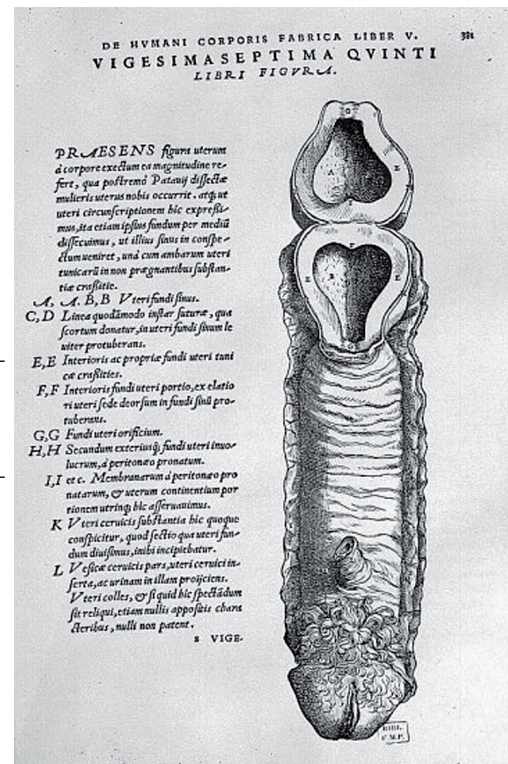 DE HVMANI CORPORIS FABRICA LIBER V. 381
VIGESIMASEPTIMA QVINTI
LIBRI FIGVRA.
PRAESENS figura uterum
à corpore exectum ea magnitudine re-
fert, qua postremò Patauij dissectæ
mulieris uterus nobis occurrit. atq; ut
uteri circunscriptionem hic expressi-
mus, ita etiam ipsius fundum per mediũ
dissecuimus, ut illius sinus in conspe-
ctum ueniret, unà cum ambarum uteri
tunicarũ in non prægnantibus substan-
tiæ crassitie.
A, A. B, B Vteri fundi sinus.
C, D Linea quodãmodo instar suturæ, qua
scortum donatur, in uteri fundi sinum le
uiter protuberans.
E, E Interioris ac propriæ fundi uteri tuni
cæ crassities.
F, F Interioris fundi uteri portio, ex elatio
ri uteri sede deorsum in fundi sinũ pro-
tuberans.
G, G Fundi uteri orificium.
H, H Secundum exteriusq; fundi uteri inuo-
lucrum, à peritonæo pronatum.
I, I et c. Membranarum à peritonæo pro
natarum, & uterum continentium por
tionem utrinq; hic asseruauimus.
K Vteri ceruicis substantia hic quoque
conspicitur, quod sectio qua uteri fun-
dum diuisimus, inibi incipiebatur.
L Vesicæ ceruicis pars, uteri ceruici in-
serta, ac urinam in illam proijciens.
Vteri colles, & si quid hic spectãdum
sit reliqui, etiam nullis appositis chara
cteribus, nulli non patent.
s VIGE-
BIBL.
F.M.P.